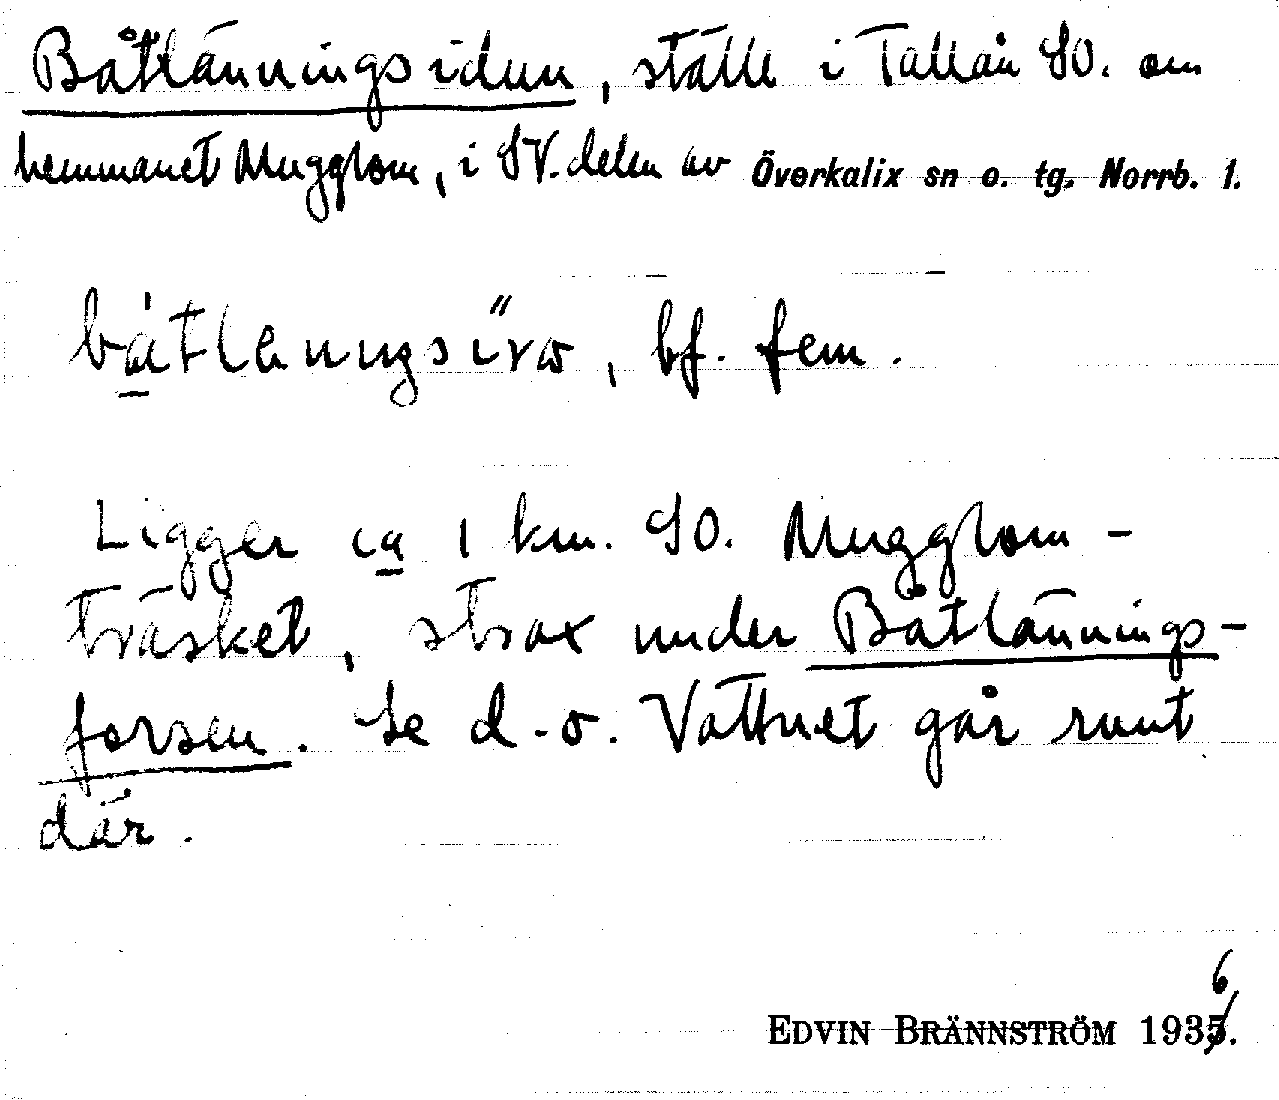 Båtlänningsidun, ställe i Tallån SO. om
hemmanet Mugglom, i SV. delen av Överkalix sn o. tg. Norrb. 1.
båtlännŋgsi̋va, bf. fem.
Ligger ca 1 km. SO. Mugglom-
träsket, strax under Båtlännings-
forsen. Se d. o. Vattnet går runt
där.
6
EDVIN BRÄNNSTRÖM 1935.